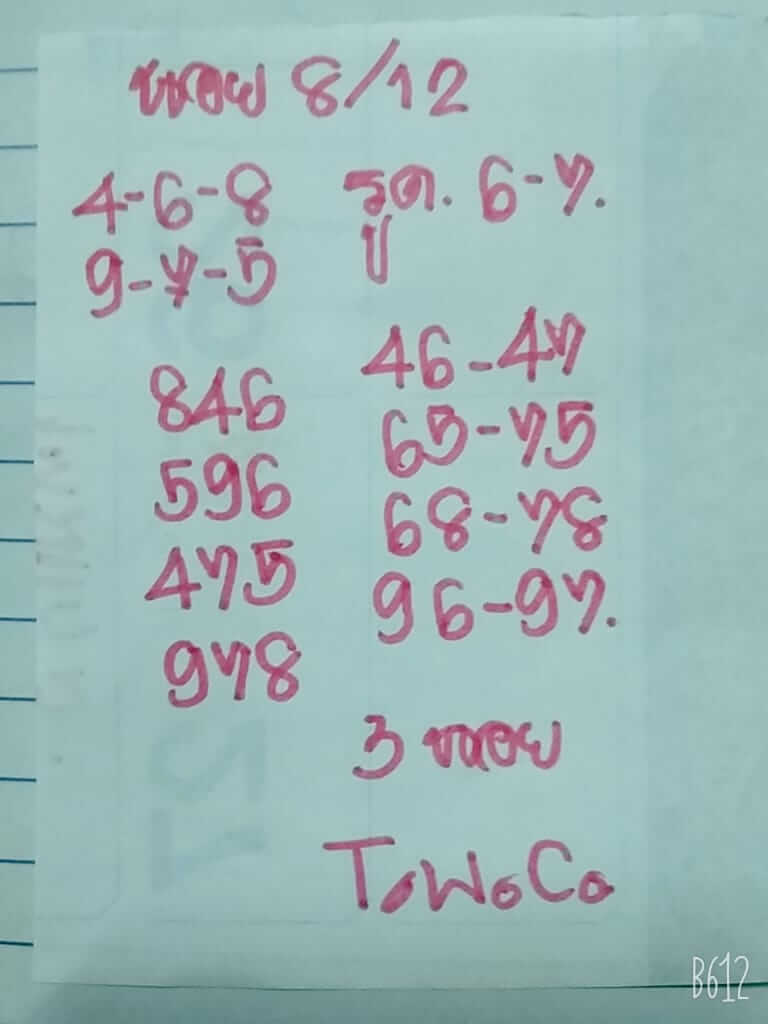 หนอย 8/12
4-6-8 รูด. 6-7.
9-7-5 ปู
846 46-47
596 65-75
475 68-78
978 96-97.
3 หนอย
T.W.C.
B612